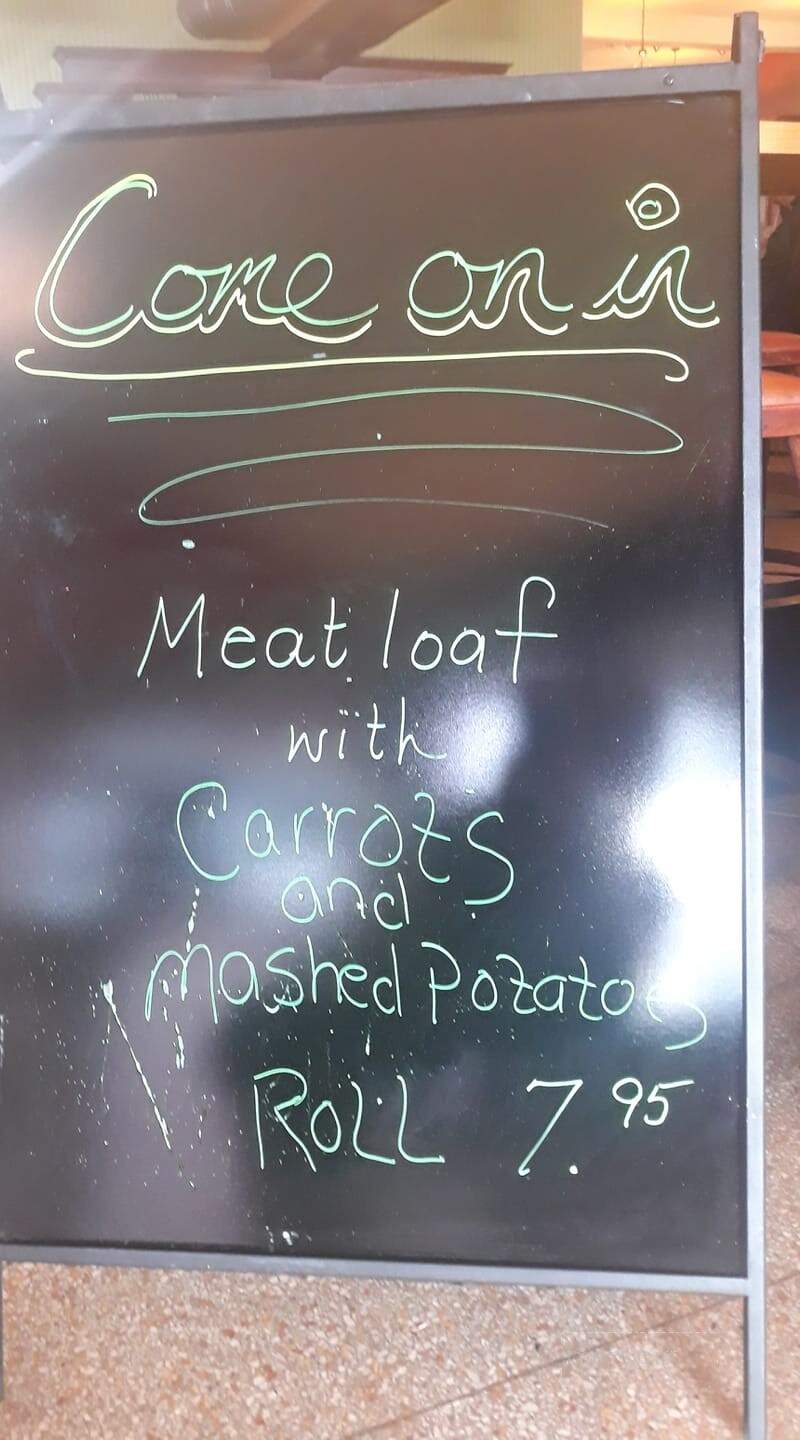 Come on in
Meat loaf
with
Carrots
and
mashed Potatoes
ROLL 7.95